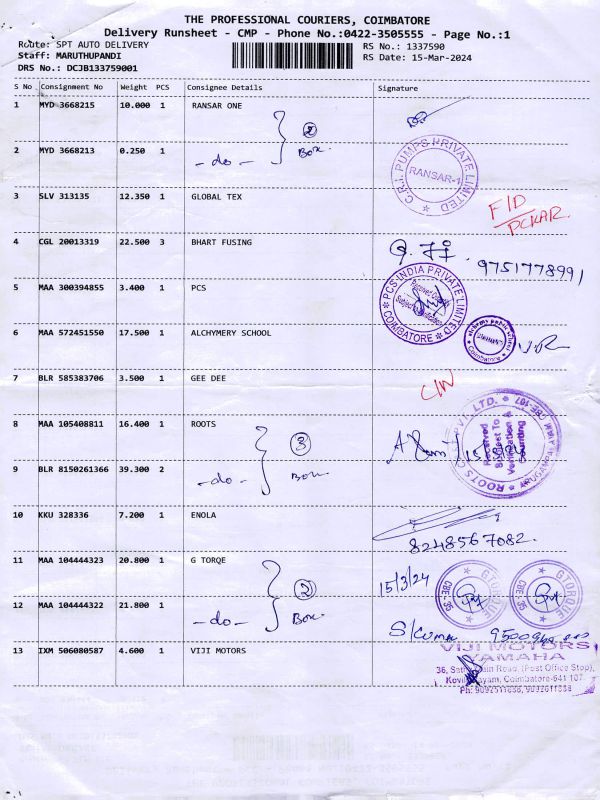 THE PROFESSIONAL COURIERS, COIMBATORE
Delivery Runsheet - CMP - Phone No.:0422-3505555 - Page No.:1
Route: SPT AUTO DELIVERY
RS No.: 1337590
Staff: MARUTHUPANDI
RS Date: 15-Mar-2024
DRS No.: DCJB133759001
S No Consignment No Weight PCS Consignee Details Signature
1 MYD 3668215 10.000 1 RANSAR ONE
2 Box
2 MYD 3668213 0.250 1 -do-
C.R.I. PUMPS PRIVATE LIMITED
RANSAR-1
3 SLV 313135 12.350 1 GLOBAL TEX
4 CGL 20013319 22.500 3 BHART FUSING
9751778991
5 MAA 300394855 3.400 1 PCS
PCS-INDIA PRIVATE LIMITED
COIMBATORE
6 MAA 572451550 17.500 1 ALCHYMERY SCHOOL
7 BLR 585383706 3.500 1 GEE DEE
8 MAA 105408811 16.400 1 ROOTS
3 Box
Received
Subject To
Verification &
Counting
9 BLR 8150261366 39.300 2 -do-
10 KKU 328336 7.200 1 ENOLA
8248567082.
11 MAA 104444323 20.800 1 G TORQE
2 Box
15/3/24
GTORQUE
CBE-35
GTORQUE
CBE-35
12 MAA 104444322 21.800 1 -do-
13 IXM 506080587 4.600 1 VIJI MOTORS
VIJI MOTORS
YAMAHA
Road, (Post Office Stop),
Coimbatore-641 107.